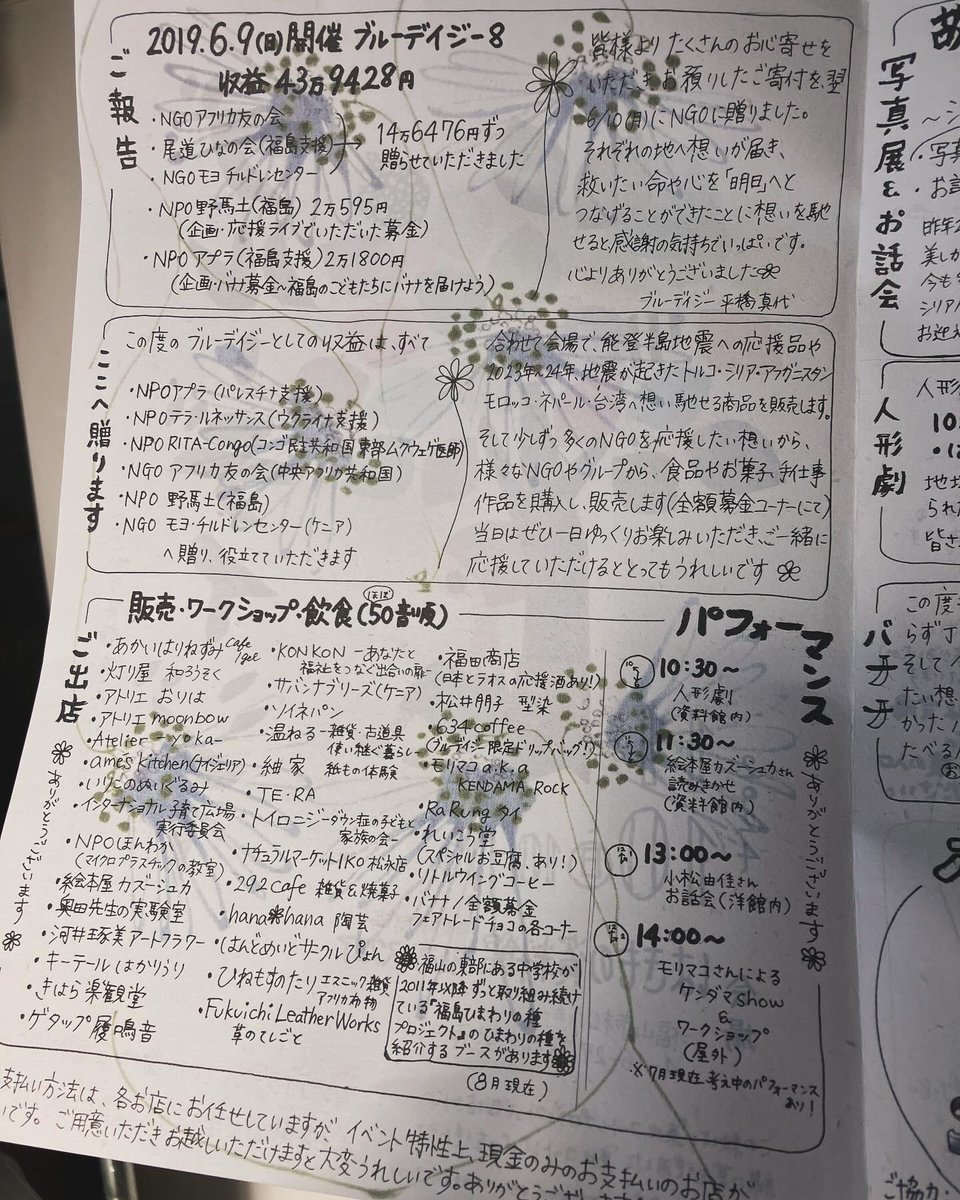 ご報告
2019.6.9(日)開催 ブルーデイジー8
収益 43万9428円
・NGOアフリカ友の会
・尾道ひなの会(福島支援)
・NGOモヨ チルドレンセンター
→ 14万6476円ずつ
贈らせていただきました
・NPO野馬土(福島) 2万595円
(企画・応援ライブでいただいた募金)
・NPOアプラ(福島支援) 2万1800円
(企画・バナナ募金へ福島のこどもたちにバナナを届けよう)
皆様より たくさんのお心寄せを
いただきお預りしたご寄付を、翌
6/10(月)にNGOに贈りました。
それぞれの地へ想いが届き、
救いたい命や心を「明日」へと
つなげることができたことに想いを馳
せると感謝の気持ちでいっぱいです。
心よりありがとうございました
ブルーデイジー 平櫛真代
ここへ贈ります
この度のブルーデイジーとしての収益は、すべて
・NPOアプラ (パレスチナ支援)
・NPOテラ・ルネッサンス(ウクライナ支援)
・NPO RITA-Congo(コンゴ民主共和国東部ムクウェゲ医師)
・NGO アフリカ友の会(中央アフリカ共和国)
・NPO 野馬土(福島)
・NGO モヨ・チルドレンセンター(ケニア)
へ贈り、役立てていただきます
合わせて会場で、能登半島地震への応援品や
2023年・24年、地震が起きたトルコ・シリア・アフガニスタン
モロッコ・ネパール・台湾へ想い馳せる商品を販売します。
そして少しずつ多くのNGOを応援したい想いから、
様々なNGOやグループから、食品やお菓子、手仕事
作品を購入し、販売します(全額募金コーナーにて)
当日はぜひ一日ゆっくりお楽しみいただき、ご一緒に
応援していただけるととってもうれしいです
ご出店
販売・ワークショップ・飲食(ほぼ50音順)
・あかいはりねずみ cafe
・灯り屋 和ろうそく
・アトリエ おりは
・アトリエ moonbow
・Atelier -yoka-
・ame's kitchen(ナイジェリア)
・いりこのぬいぐるみ
・インターナショナル子育て広場
実行委員会
・NPOほんわか
(マイクロプラスチックの教室)
・絵本屋 カズーシュカ
・奥田先生の実験室
・河井琢美アートフラワー
・キーテール はかりうり
・きはら楽観堂
・ゲタップ 履鳴音
ありがとうございます
・KONKON -あなたと
福祉をつなぐ出合いの扉-
・サバンナブリーズ(ケニア)
・ソイネパン
・温ねる -雑貨・古道具
使い継ぐ暮らし-
・紬家 紙もの体験
・TE・RA
・トイロニジーダウン症の子どもと
家族の会-
・ナチュラルマーケットIKO 松永店
・292cafe 雑貨&焼菓子
・hana hana 陶芸
・はんどめいどサークルぴょん
・ひねもすのたり エスニック雑貨
アフリカ布物
・Fukuichi Leather Works
革のてしごと
・福田商店
(日本とラオスの応援酒あり!)
・松井朋子 型染
・634 coffee
(ブルーデイジー限定ドリップバッグ!)
・モリマコ a.k.a
KENDAMA Rock
・RaRung タイ
・れいこう堂
(スペシャルお豆腐、あり!)
・リトルウイングコーヒー
・バナナ/全額募金
フェアトレードチョコの各コーナー
福山の東部にある中学校が
2011年以降ずっと取り組み続け
ている『福島ひまわりの種
プロジェクト』のひまわりの種を
紹介するブースがあります
(8月現在)
パフォーマンス
10:30〜
人形劇
(資料館内)
11:30〜
絵本屋カズーシュカさん
読みきかせ
(資料館内)
13:00〜
小松由佳さん
お話会(洋館内)
14:00〜
モリマコさんによる
ケンダマshow
&
ワークショップ
(屋外)
※7月現在、考え中のパフォーマンス
あり!
ありがとうございます
支払い方法は、各お店にお任せしていますが、イベント特性上、現金のみのお支払いのお店が
いです。ご用意いただきお越しいただけますと大変うれしいです。ありがとうござ
写真展&お話会
・写真
・お話
昨年2
美しか
今も
シリア
お迎え
人形劇
人形
10:
地
られた
皆さ
バナナ
この度
らず
そして
たい想
かった
たべる
ご協力・